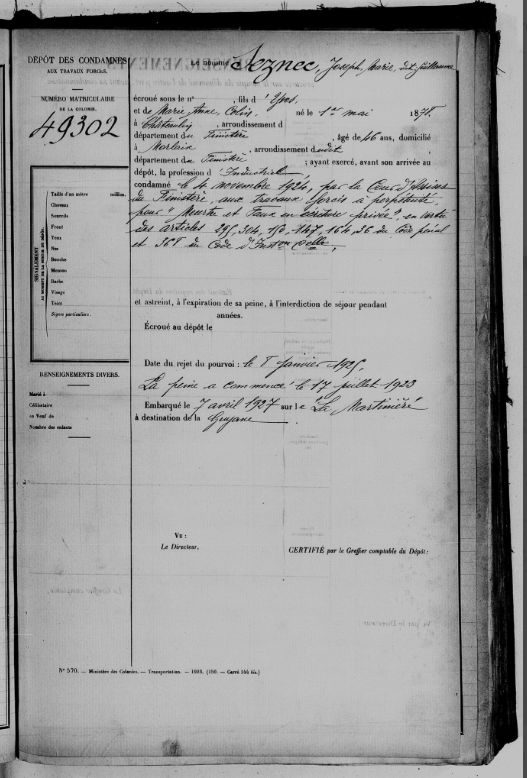 DÉPÔT DES CONDAMNÉS
AUX TRAVAUX FORCÉS.
NUMÉRO MATRICULAIRE
DE LA COLONIE.
49302
Le nommé Seznec, Joseph, Marie, dit Guillaume
écroué sous le n° , fils d'Yves
et de Marie Anne Colin, né le 1er mai 1878
à , arrondissement d
département du Finistère, âgé de 46 ans, domicilié
à Morlaix, arrondissement dudit
département du Finistère; ayant exercé, avant son arrivée au
dépôt, la profession d'Industriel,
condamné le 4 novembre 1924, par la Cour d'Assises
du Finistère, aux travaux forcés à perpétuité,
pour "Meurtre et Faux en écriture privée", en vertu
des articles 295, 304, 150, 147, 164, 36 du Code pénal
et 368 du Code d'Inston Celle.
et astreint, à l'expiration de sa peine, à l'interdiction de séjour pendant
années.
Écroué au dépôt le
Date du rejet du pourvoi : le 8 Janvier 1925,
La peine a commencé le 17 juillet 1923
Embarqué le 7 avril 1927 sur le "La Martinière"
à destination de la Guyane
SIGNALEMENT
Taille d'un mètre millim.
Cheveux
Sourcils
Front
Yeux
Nez
Bouche
Menton
Barbe
Visage
Teint
Signes particuliers.
RENSEIGNEMENTS DIVERS.
Marié à
Célibataire
ou Veuf de
Nombre des enfants
Vu :
Le Directeur,
CERTIFIÉ par le Greffier comptable du Dépôt :
N° 570. — Ministère des Colonies. — Transportation.